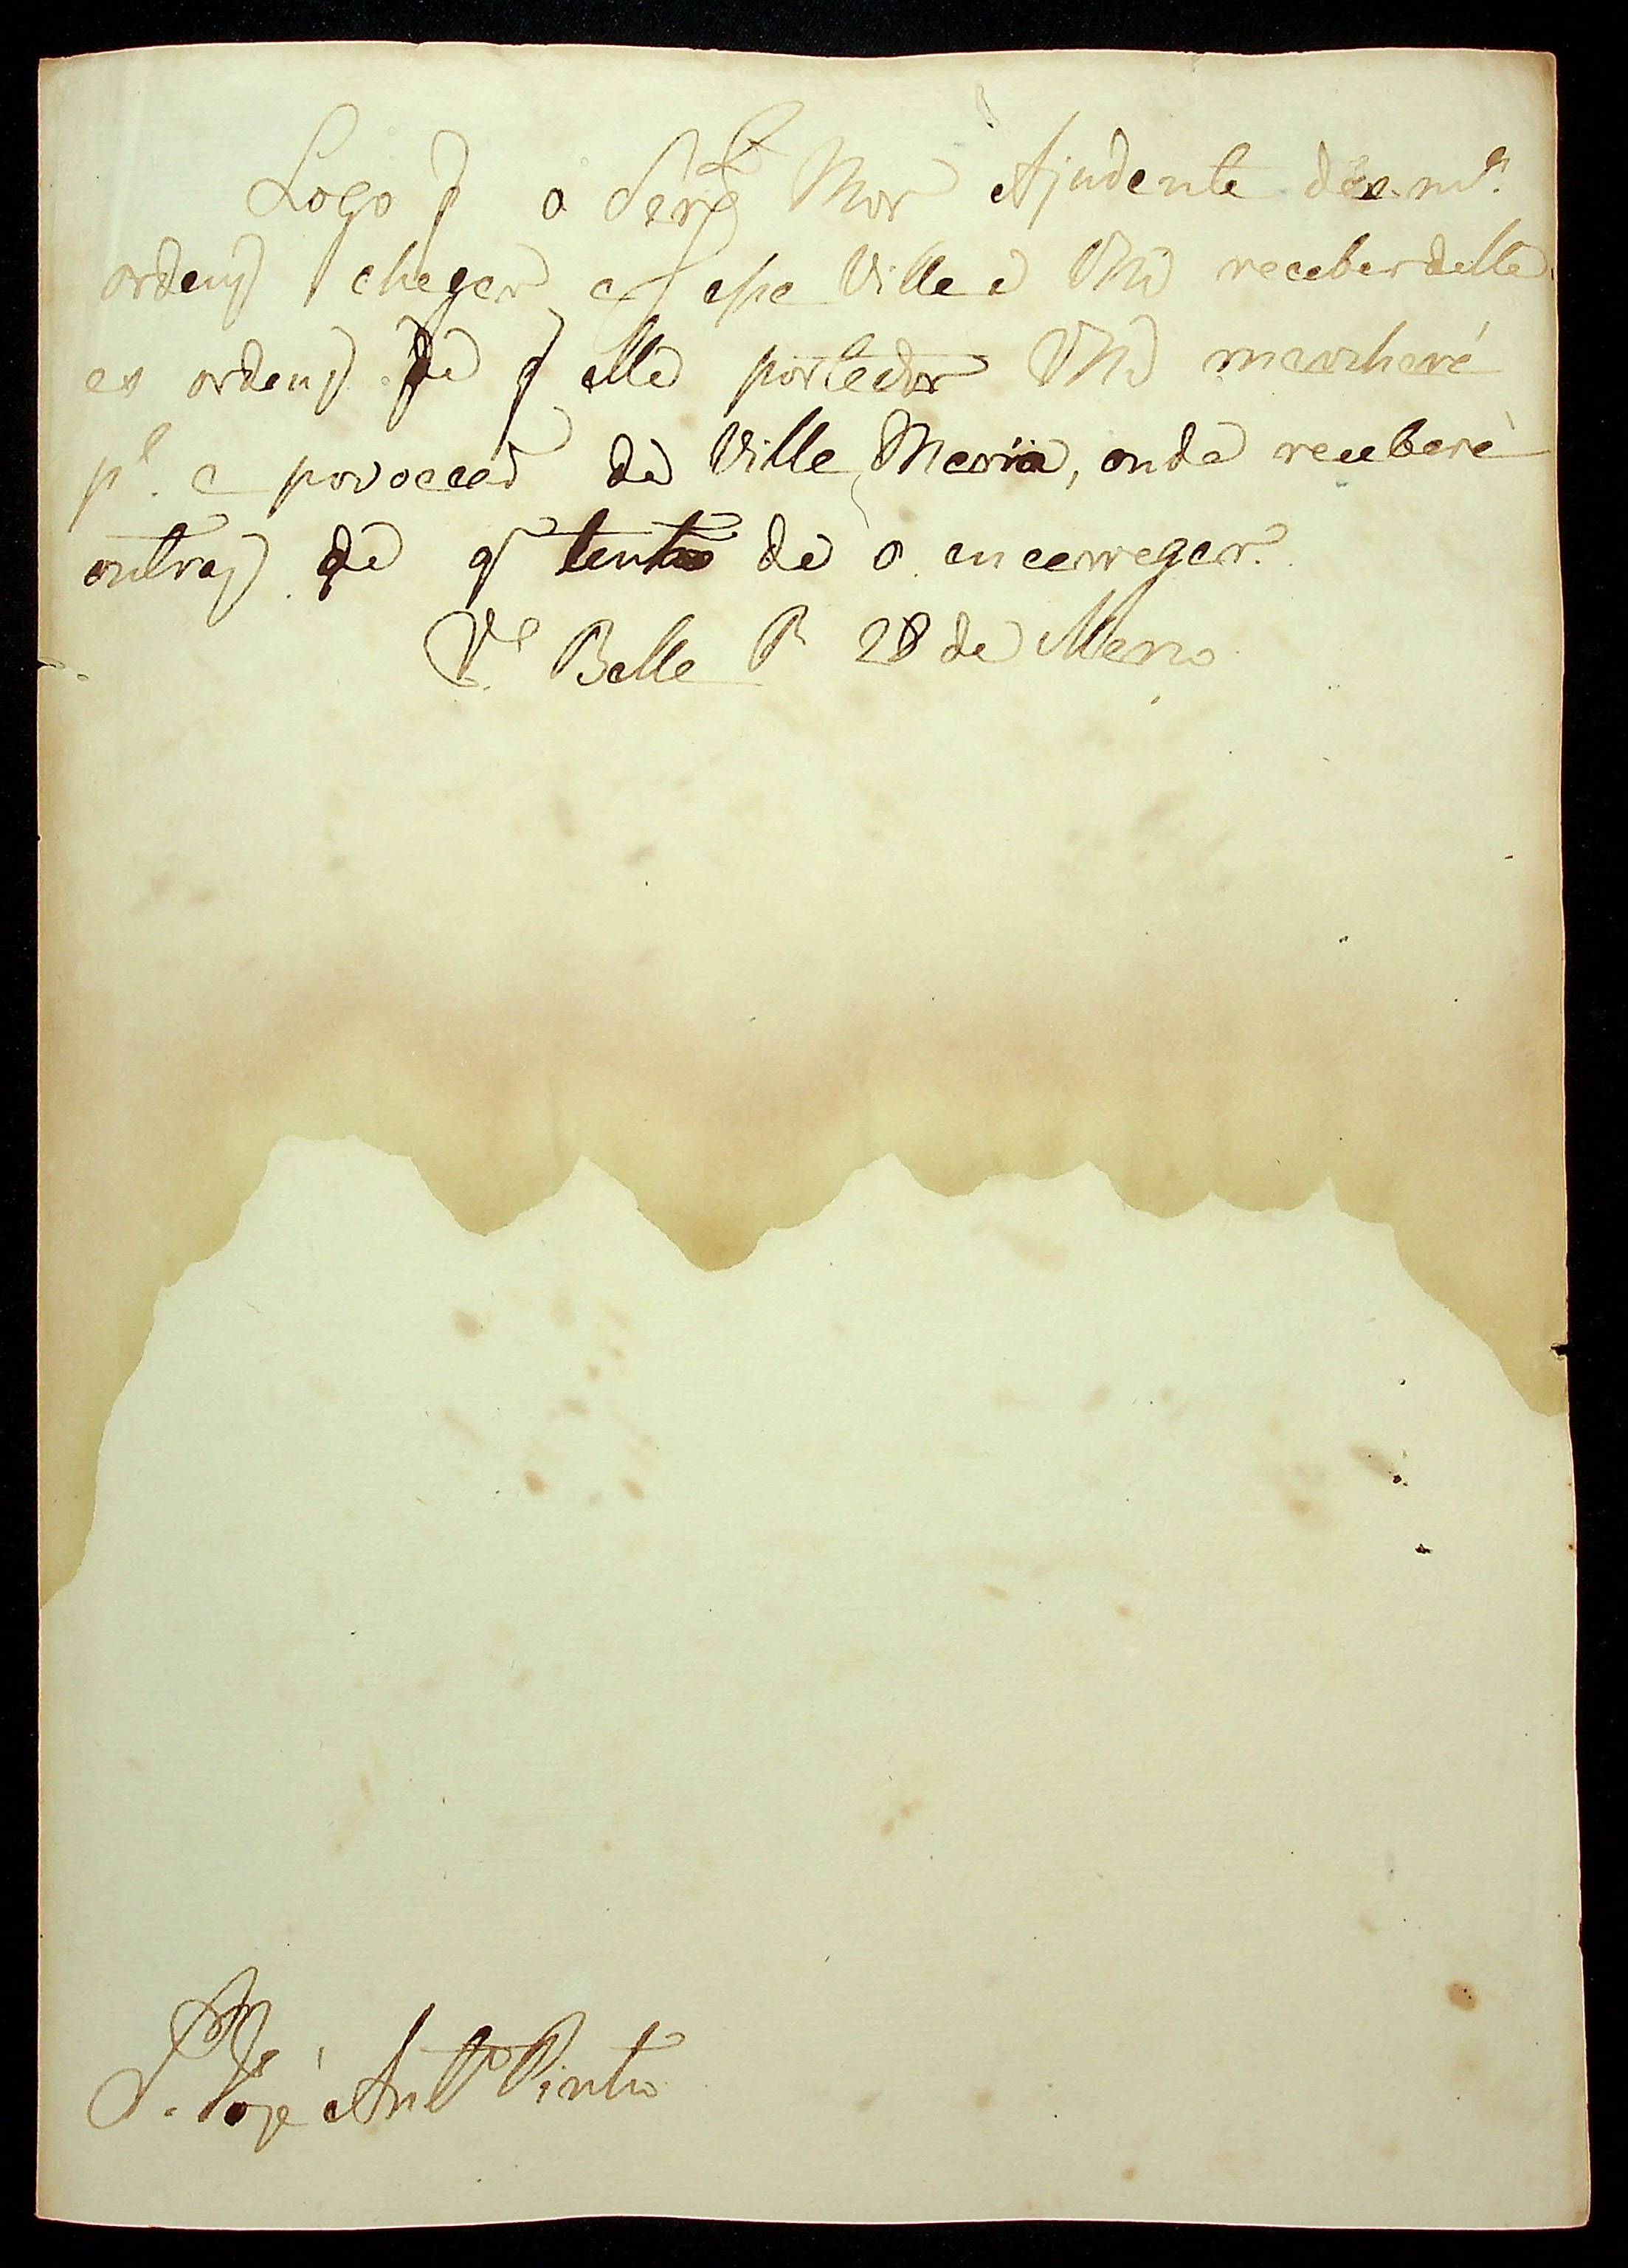 Logo q̃ o Sarg.to Mor Ajudante das m.as
ordens chegar a essa Villa e Vm.ce receber delle
as ordens de q̃ elle portador Vm.ce marchará
p.a a povoaçaõ de Villa Maria, onde receberá
outras de q̃ tenho de o encarregar.
V.a Bella 28 de Março
S.r Jozé Ant.o Pinto